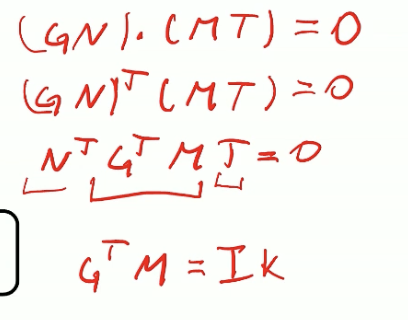 (GN).(MT)=0
(GN)ᵀ(MT)=0
NᵀGᵀMT=0
GᵀM=Ik